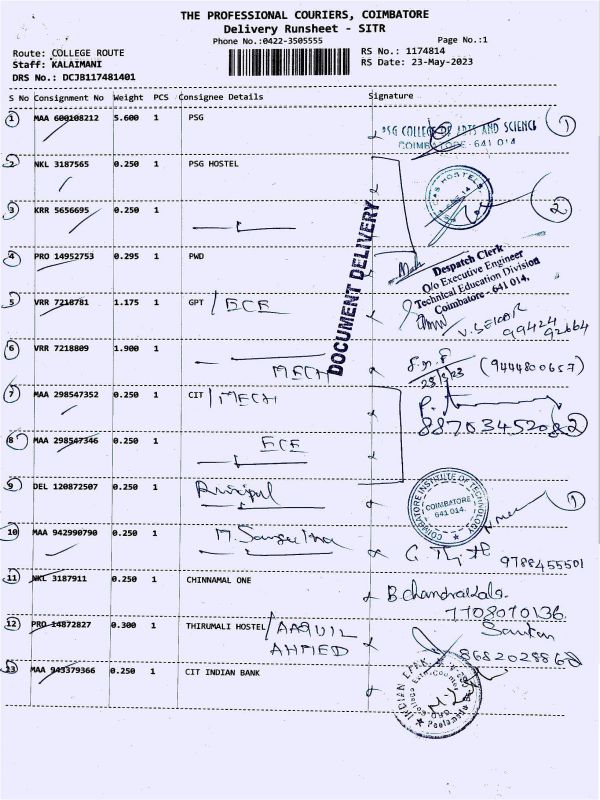 THE PROFESSIONAL COURIERS, COIMBATORE
Delivery Runsheet - SITR
Phone No.:0422-3505555 Page No.:1
Route: COLLEGE ROUTE RS No.: 1174814
Staff: KALAIMANI RS Date: 23-May-2023
DRS No.: DCJB117481401
S No Consignment No Weight PCS Consignee Details Signature
1 MAA 600108212 5.600 1 PSG
PSG COLLEGE OF ARTS AND SCIENCE 1
COIMBATORE - 641 014
2 NKL 3187565 0.250 1 PSG HOSTEL
3 KRR 5656695 0.250 1 2
DOCUMENT DELIVERY
4 PRO 14952753 0.295 1 PWD
Despatch Clerk
O/o Executive Engineer
Technical Education Division
Coimbatore - 641 014.
5 VRR 7218781 1.175 1 GPT / ECE
99424
92664
6 VRR 7218809 1.900 1 MECH
(9444800657)
7 MAA 298547352 0.250 1 CIT / MECH
8 MAA 298547346 0.250 1 ECE 2
9 DEL 120872507 0.250 1
COIMBATORE INSTITUTE OF TECHNOLOGY
COIMBATORE
641 014. 1
10 MAA 942990790 0.250 1
9788455501
11 NKL 3187911 0.250 1 CHINNAMAL ONE B. Chandrakala
7708070136
12 PRO 14872827 0.300 1 THIRUMALI HOSTEL / AAQUIL
AHMED
8682028868
13 MAA 943379366 0.250 1 CIT INDIAN BANK
INDIAN BANK